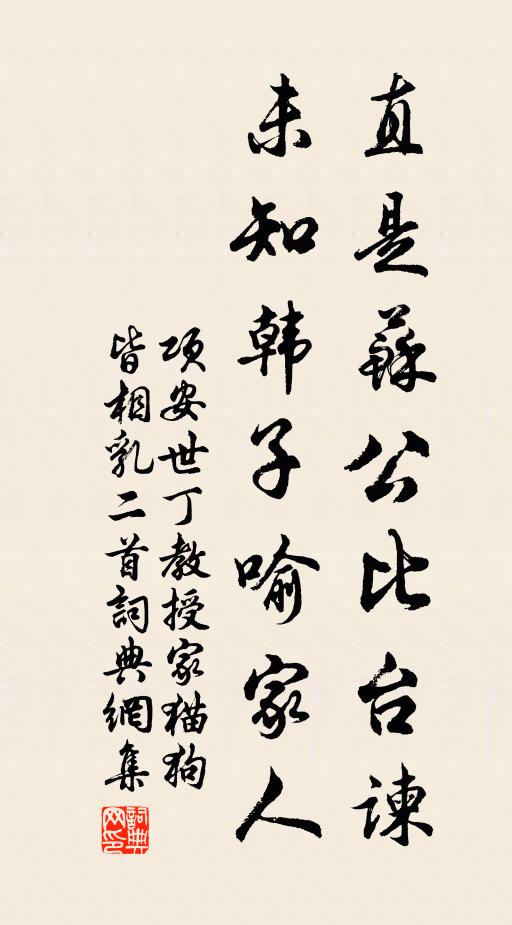 直是蘇公比台諫
未知韩子喻家人
项安世丁教授家猫狗
皆相乳二首詞典網集
詞典
网印